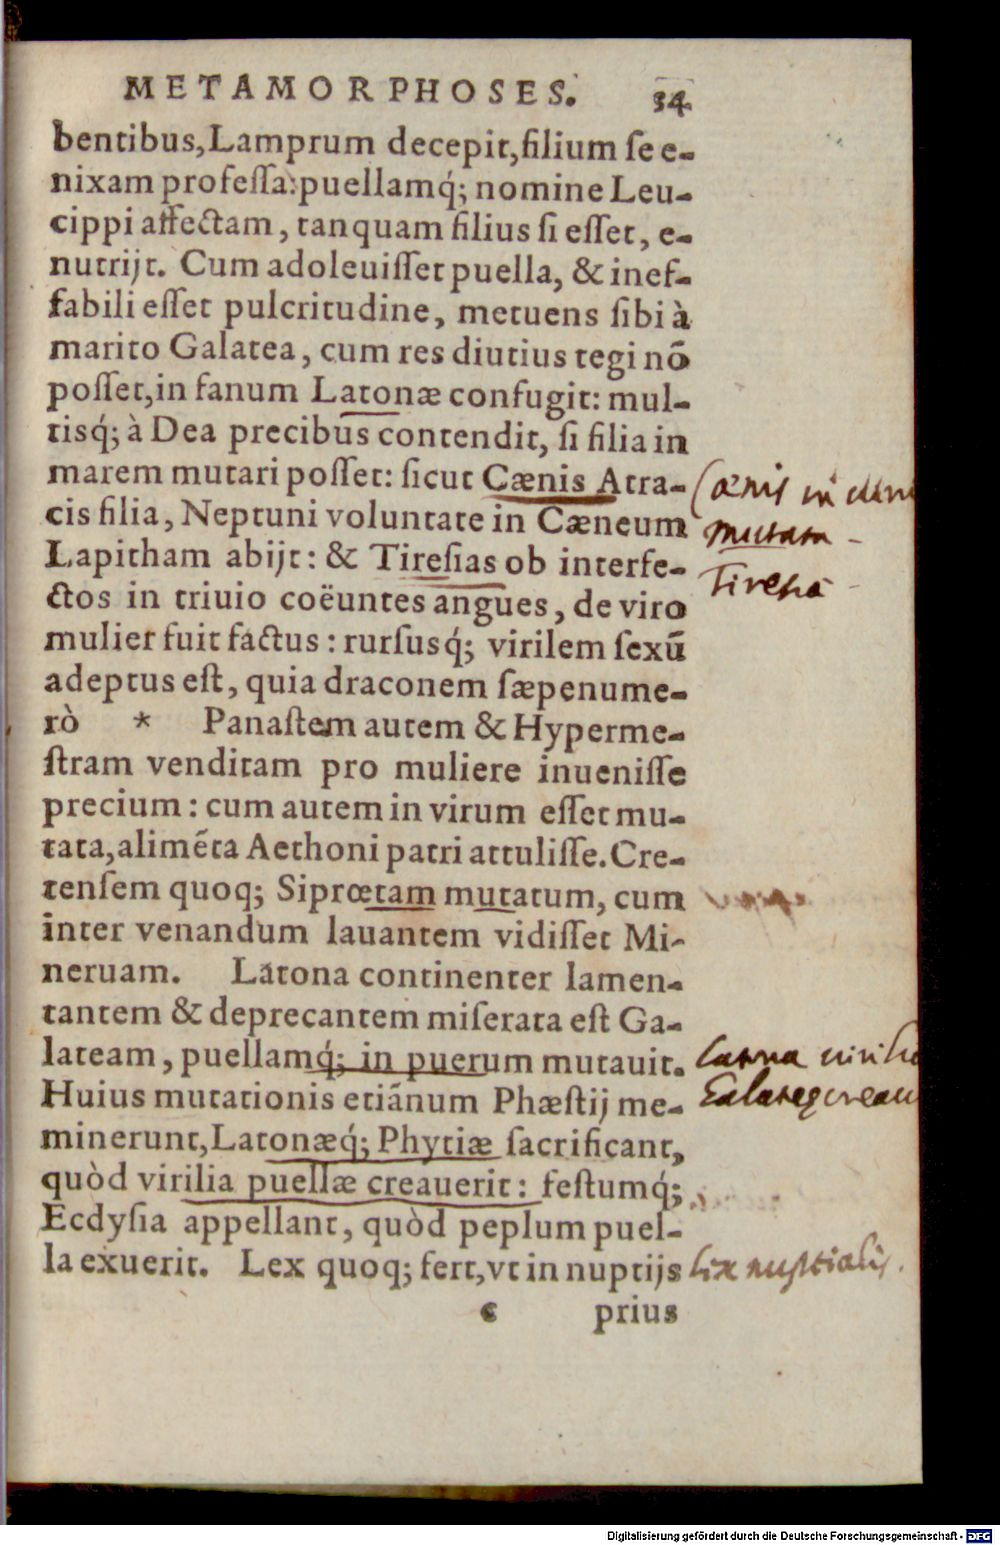 METAMORPHOSES. 34
bentibus, Lamprum decepit, filium ſe e-
nixam profeſſa: puellamq́; nomine Leu-
cippi affectam, tanquam filius ſi eſſet, e-
nutrijt. Cum adoleuiſſet puella, & inef-
fabili eſſet pulcritudine, metuens ſibi à
marito Galatea, cum res diutius tegi nō
poſſet, in fanum Latonæ confugit: mul-
tisq́; à Dea precibus contendit, ſi filia in
marem mutari poſſet: ſicut Cænis Atra-
cis filia, Neptuni voluntate in Cæneum
Lapitham abijt: & Tireſias ob interfe-
ctos in triuio coëuntes angues, de viro
mulier fuit factus: rurſusq́; virilem ſexū
adeptus eſt, quia draconem ſæpenume-
rò * Panaſtem autem & Hyperme-
ſtram venditam pro muliere inueniſſe
precium: cum autem in virum eſſet mu-
tata, alimēta Aethoni patri attuliſſe. Cre-
tenſem quoq; Siprœtam mutatum, cum
inter venandum lauantem vidiſſet Mi-
neruam. Latona continenter lamen-
tantem & deprecantem miſerata eſt Ga-
lateam, puellamq́; in puerum mutauit.
Huius mutationis etiānum Phæſtij me-
minerunt, Latonæq́; Phytiæ ſacrificant,
quòd virilia puellæ creauerit: feſtumq́;
Ecdyſia appellant, quòd peplum puel-
la exuerit. Lex quoq; fert, vt in nuptijs
e prius
Cænis in
mutata
Tiresia
Latona
lex nuptialis.
Digitalisierung gefördert durch die Deutsche Forschungsgemeinschaft - DFG